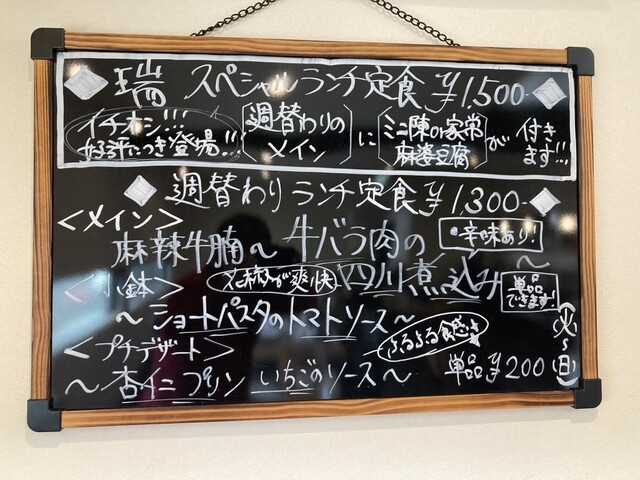 瑞 スペシャルランチ定食 ¥1,500-
イチオシ!!!
好評につき登場!!!
週替わりの
メイン
に
ミニ陳or家常
麻婆豆腐
が
付き
ます!!
週替わりランチ定食 ¥1,300-
<メイン>
麻辣牛腩～牛バラ肉の
・辛味あり!
四川煮込み～
花椒が爽快
単品
できます!
<小鉢>
～ショートパスタのトマトソース～
<プチデザート>
ふるふる食感
～杏仁プリン いちごのソース～
単品 ¥200
(火～日)